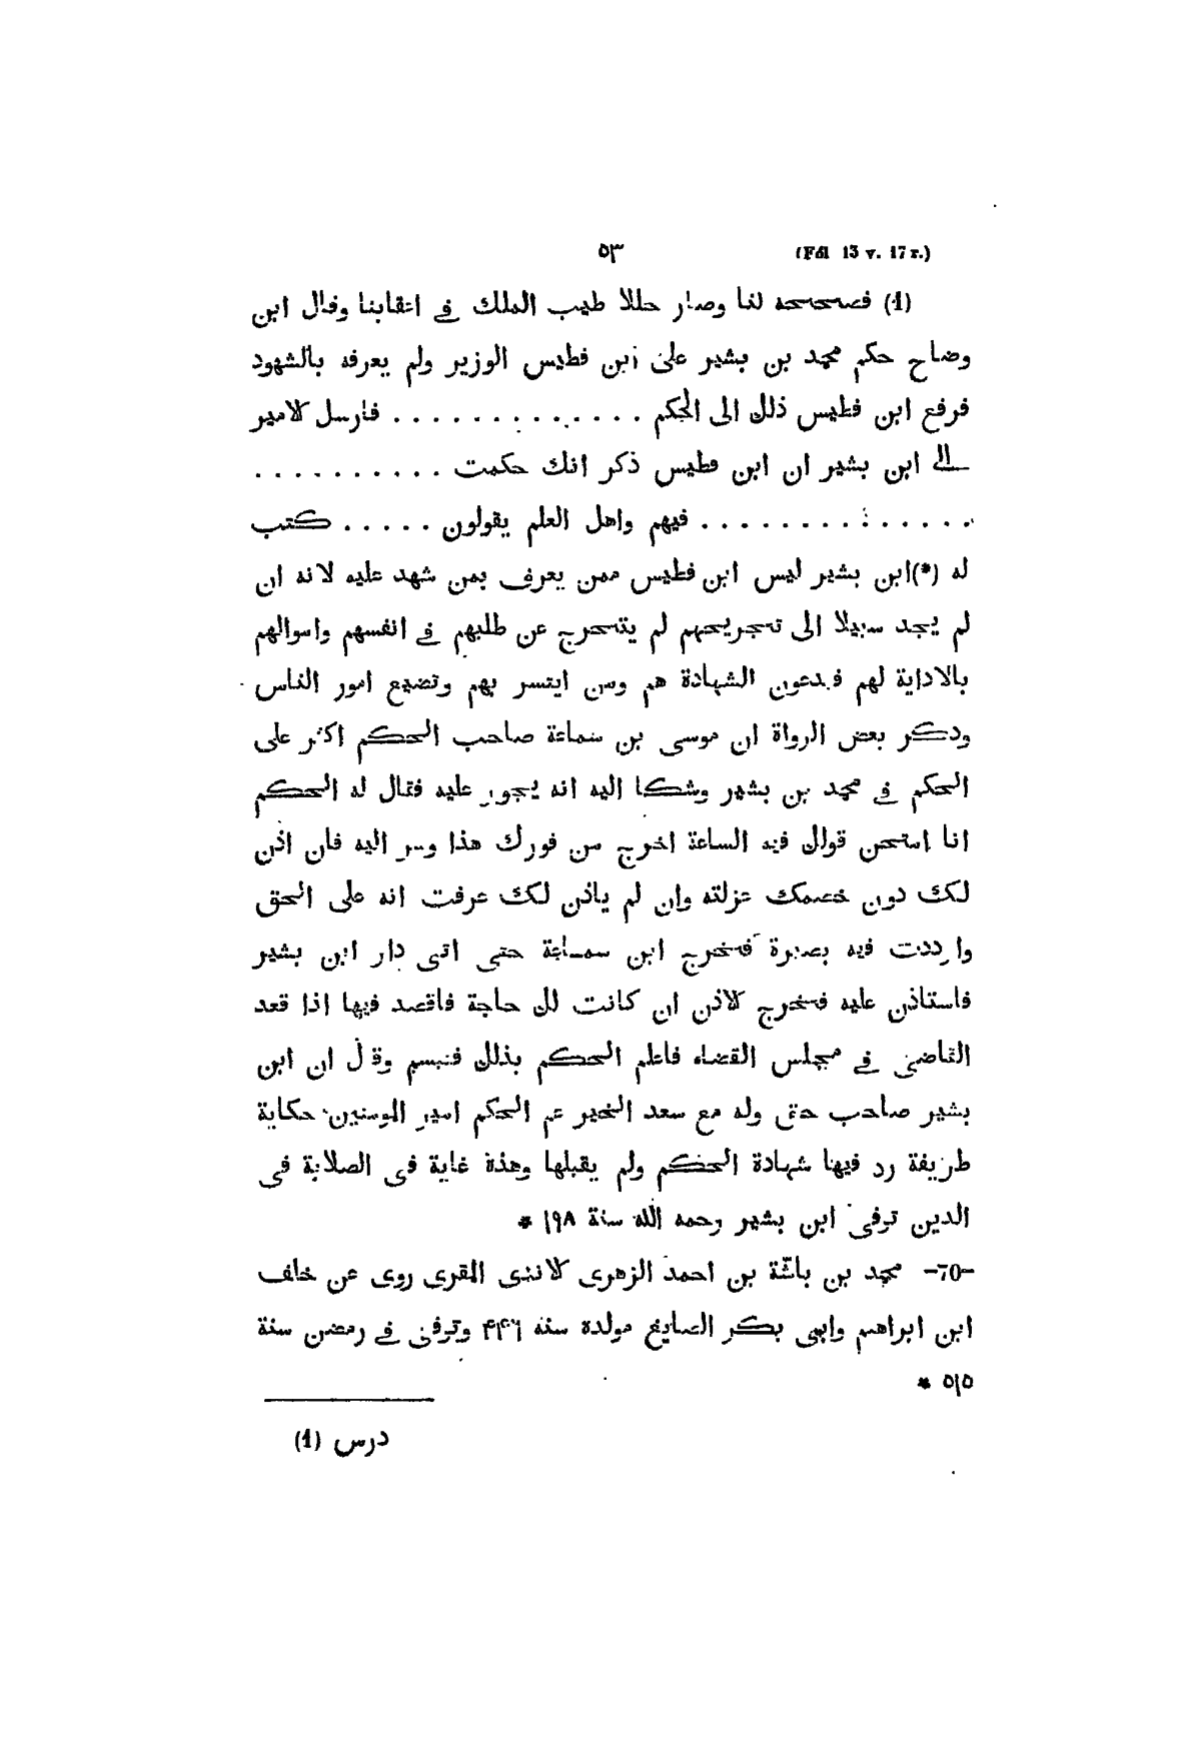 (Fol 13 v. 17 r.) ٥٣
(1) فصححه لنا وصار حللا طيب الملك في اعقابنا وقال ابن
وضاح حكم محمد بن بشير على ابن فطيس الوزير ولم يعرفه بالشهود
فرفع ابن فطيس ذلك الى الحكم . . . . . . . . . . . . . فارسل لامير
الى ابن بشير ان ابن فطيس ذكر انك حكمت . . . . . . . . . .
. . . . . . . . . . . . . . فيهم واهل العلم يقولون . . . . . كتب
له (*)ابن بشير ليس ابن فطيس ممن يعرف بمن شهد عليه لانه ان
لم يجد سبيلا الى تجريحهم لم يتحرج عن طلبهم في انفسهم واموالهم
بالاداية لهم فيدعون الشهادة هم ومن ايتسر بهم وتضيع امور الناس
وذكر بعض الرواة ان موسى بن سماعة صاحب الحكم اكثر على
الحكم في محمد بن بشير وشكا اليه انه يجور عليه فقال له الحكم
انا امتحن قولك فيه الساعة اخرج من فورك هذا وسر اليه فان اذن
لك دون خصمك عزلته وان لم ياذن لك عرفت انه على الحق
وازددت فيه بصيرة فخرج ابن سماعة حتى اتى دار ابن بشير
فاستاذن عليه فخرج لاذن ان كانت لك حاجة فاقصد فيها اذا قعد
القاضي في مجلس القضاء فاعلم الحكم بذلك فتبسم وقال ان ابن
بشير صاحب حق وله مع سعد الخير عم الحكم امير المومنين حكاية
طريفة رد فيها شهادة الحكم ولم يقبلها وهذة غاية في الصلابة في
الدين توفي ابن بشير رحمه الله سنة ١٩٨ *
-70- محمد بن باشة بن احمد الزهري لاندى المقرى روى عن خلف
ابن ابراهيم وابى بكر الصايغ مولدة سنه ۴۴٦ وتوفي في رمضن سنة
٥١٥ *
(1) درس